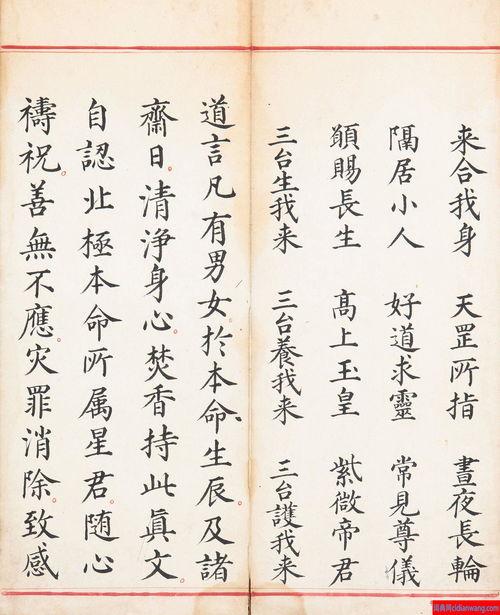 来合我身 天罡所指 晝夜長輪
隔居小人 好道求靈 常見尊儀
顗賜長生 髙上玉皇 紫微帝君
三台生我来 三台養我来 三台護我来
道言凡有男女。扵本命生辰。及諸
齋日。清淨身心。焚香持此真文。
自認北極本命所属星君。随心
禱祝。善無不應。灾罪消除。致感
词典网cidianwang.com